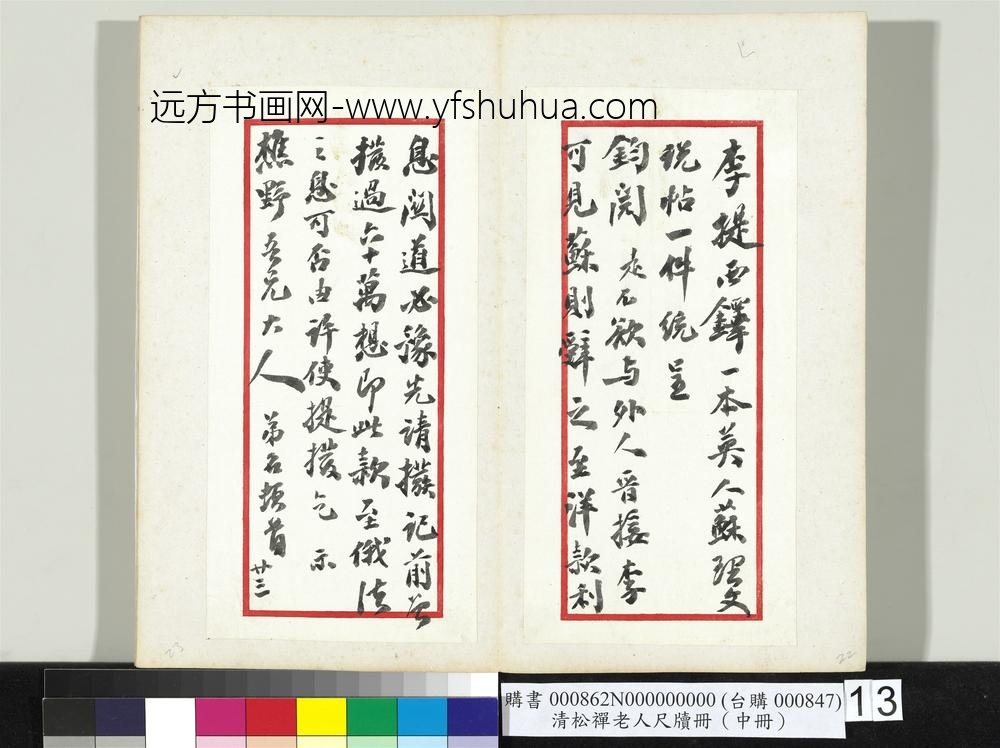 远方书画网-www.yfshuhua.com
李提西鐸一本英人蘇理文
說帖一件統呈
鈞閱 走不欲与外人晋接李
可見蘇則辭之至洋款利
息關道必豫先請撥記前者
撥過六十萬想即此款至俄法
之息可否由許使提撥乞 示
樵野吾兄大人 弟名頓首 廿三
22
23
購書 000862N000000000 (台購 000847)
清松禪老人尺牘冊（中冊）
13